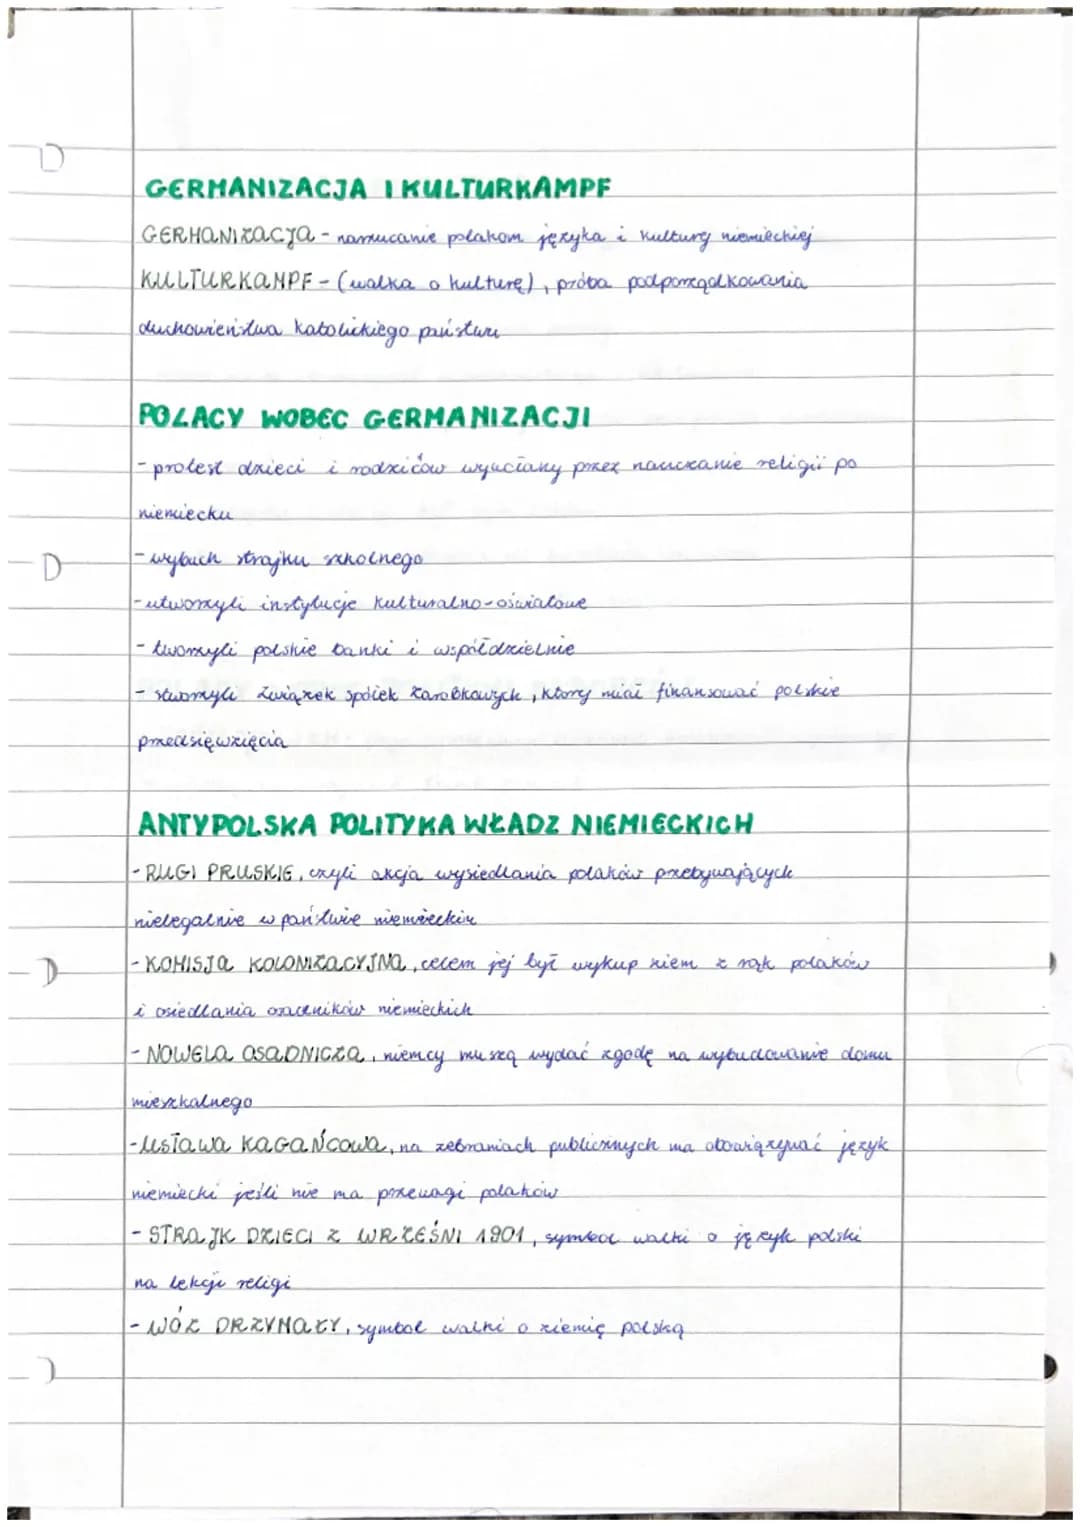 GERMANIZACJA I KULTURKAMPF
GERMANIZACJA - narzucanie polakom języka i kultury niemieckiej
KULTURKAMPF - (walka o kulturę), próba podporządkowania
duchowieństwa katolickiego państwu
POLACY WOBEC GERMANIZACJI
- protest dzieci i rodziców wywołany przez nauczanie religii po
niemiecku
- wybuch strajku szkolnego
- utworzyli instytucje kulturalno-oświatowe
- tworzyli polskie banki i współdzielnie
- stworzyli związek spółek zarobkowych, który miał finansować polskie
przedsięwzięcia
ANTYPOLSKA POLITYKA WŁADZ NIEMIECKICH
- RUGI PRUSKIE, czyli akcja wysiedlania polaków przebywających
nielegalnie w państwie niemieckim
- KOMISJA KOLONIZACYJNA, celem jej był wykup ziem z rąk polaków
i osiedlania osadników niemieckich
- NOWELA OSADNICZA, niemcy muszą wydać zgodę na wybudowanie domu
mieszkalnego
- USTAWA KAGAŃCOWA, na zebraniach publicznych ma obowiązywać język
niemiecki jeśli nie ma przewagi polaków
- STRAJK DZIECI Z WRZEŚNI 1901, symbol walki o język polski
na lekcji religi
- WÓZ DRZYMAŁY, symbol walki o ziemię polską